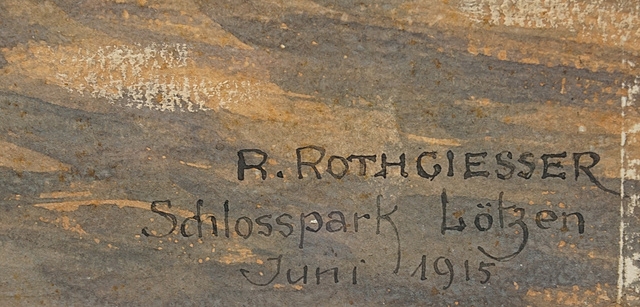 R. ROTHGIESSER
Schlosspark Lötzen
Juni 1915